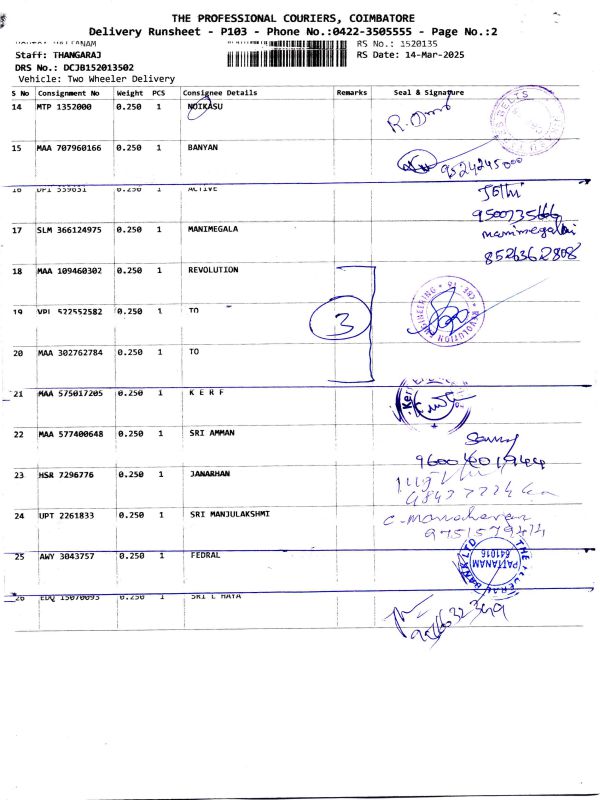 THE PROFESSIONAL COURIERS, COIMBATORE
Delivery Runsheet - P103 - Phone No.:0422-3505555 - Page No.:2
RS No.: 1520135
Staff: THANGARAJ
RS Date: 14-Mar-2025
DRS No.: DCJB152013502
Vehicle: Two Wheeler Delivery
S No Consignment No Weight PCS Consignee Details Remarks Seal & Signature
14 MTP 1352000 0.250 1 NOIKASU
15 MAA 707960166 0.250 1 BANYAN
9524245000
16 UPT 0.250 1 ACTIVE
Jethi
17 SLM 366124975 0.250 1 MANIMEGALA
manimegalai
8526362808
18 MAA 109460302 0.250 1 REVOLUTION
19 VPL 522552582 0.250 1 TO
3
REVOLUTION ENGINEERING CBE-18
20 MAA 302762784 0.250 1 TO
21 MAA 575017205 0.250 1 K E R F
22 MAA 577400648 0.250 1 SRI AMMAN
9600401944
23 HSR 7296776 0.250 1 JANARHAN
24 UPT 2261833 0.250 1 SRI MANJULAKSHMI
C-Manoharan
25 AWY 3043757 0.250 1 FEDRAL
THE FEDERAL BANK LTD
PATTANAM
641016
26 EDQ 15070093 0.250 1 SRI L MAYA